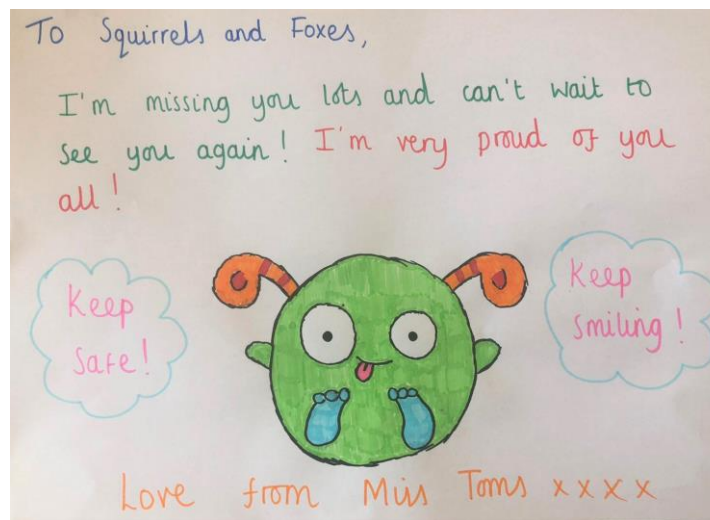 To Squirrels and Foxes,
I'm missing you lots and can't wait to
see you again! I'm very proud of you
all!
Keep
Safe!
Keep
Smiling!
Love from Miss Toms x x x x